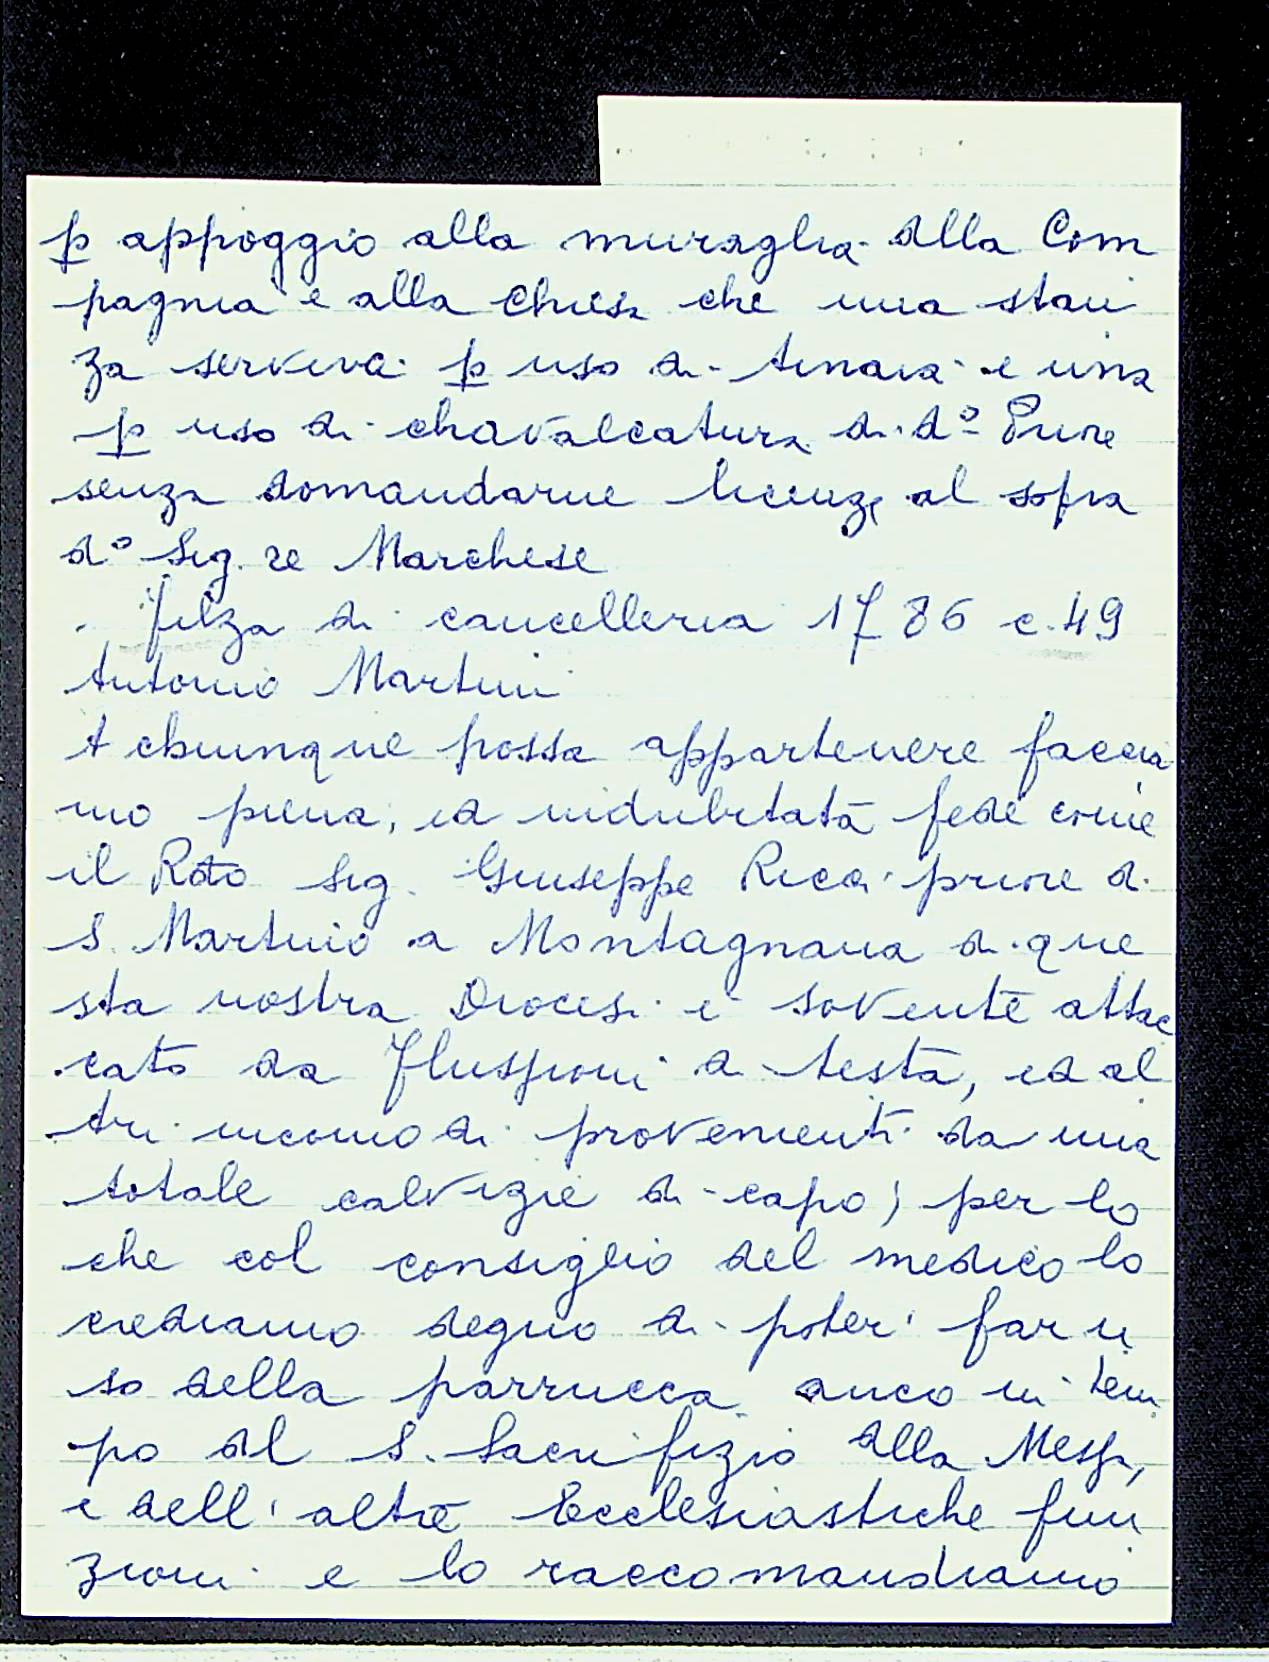 p appoggio alla muraglia della Com
pagnia e alla Chiesa che una stan
za serviva p uso di tinaia e una
p uso di chavalcatura di d° Priore
senza domandarne licenza al sopra
d° Sig. re Marchese
Filza di cancelleria 1786 c. 49
Antonio Martini
A chiunque possa appartenere faccia
mo piena, ed indubitata fede come
il Rdto Sig. Giuseppe Ricci priore di
S. Martino a Montagnana di que
sta nostra Diocesi è sovente attac
cato da Flussioni di testa, ed al
tri incomodi provenienti da una
totale calvizie di capo, per lo
che col consiglio del medico lo
crediamo degno di poter far u
so della parrucca anco in tem
po del S. Sacrifizio della Messa,
e dell' altre Ecclesiastiche fun
zioni e lo raccomandiamo